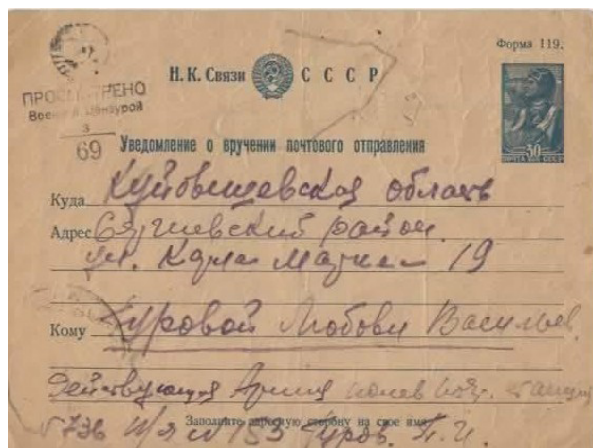 Форма 119.
Н. К. Связи СССР
ПРОСМОТРЕНО
Военной Цензурой
3
69
30
ПОЧТА СССР
Уведомление о вручении почтового отправления
Куда Куйбышевская область
Адрес Сергиевский район
ул. Карла Маркса 19
Кому Гуровой Любови Васильев.
Действующая Армия полев почт. станция
736 п/я № 153 Гуров. П. И.
Заполните адресную сторону на свое имя